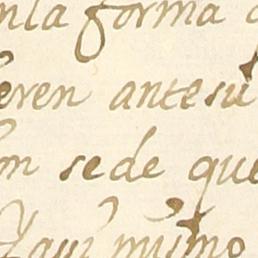 nla forma
eren antesu
on sede que
Aqui mismo